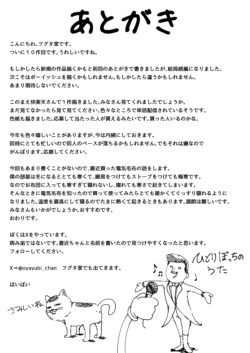 あとがき
こんにちわ。フグタ家です。
ついに10作目です。うれしいですね。
もしかしたら新規の作品描くかもと前回のあとがきで書きましたが、結局続編になりました。
次こそはボーイッシュを描くかもしれません。もしかしたら違うかもしれません。
あまり期待しないでください。
このまえ快楽天さんで1作描きました。みなさん見てくれましたでしょうか。
まだ見てなかったら見て見てください。色々なところで単話配信されているそうです。
色紙も描きました。応募して当たった人が貰えるみたいです。買った人いるのかな。
今年も色々嬉しいことがありますが、今は内緒にしておきます。
同時にとても忙しいので同人のペースが落ちるかもしれません。でもそれは嫌なので
がんばります。応援してください。
今回もあまり書くことがないので、最近買った電気毛布の話をします。
僕の部屋は冬になるととても寒くて、暖房をつけてもストーブをつけても極寒です。
なのでお布団に入っても寒すぎて寝れないし、寝れても寒さで起きてしまいます。
そんなときに電気毛布を知ったので買って使ってみたらとても暖かくてぐっすり寝れるように
なりました。温度を最高にして寝るのでたまに熱くて起きるときもあります。調節は難しいです。
みなさんもいかがでしょうか。おすすめです。
おわりです。
ぼくはXをやっています。
病み垢ではないです。最近ちゃんと名前を書いたので見つけやすくなったと思います。
フォローしてください。
X→@oyayubi_chan フグタ家でも出てきます。
ばいばい
さみしいね。
ひとりぼっちの
うた